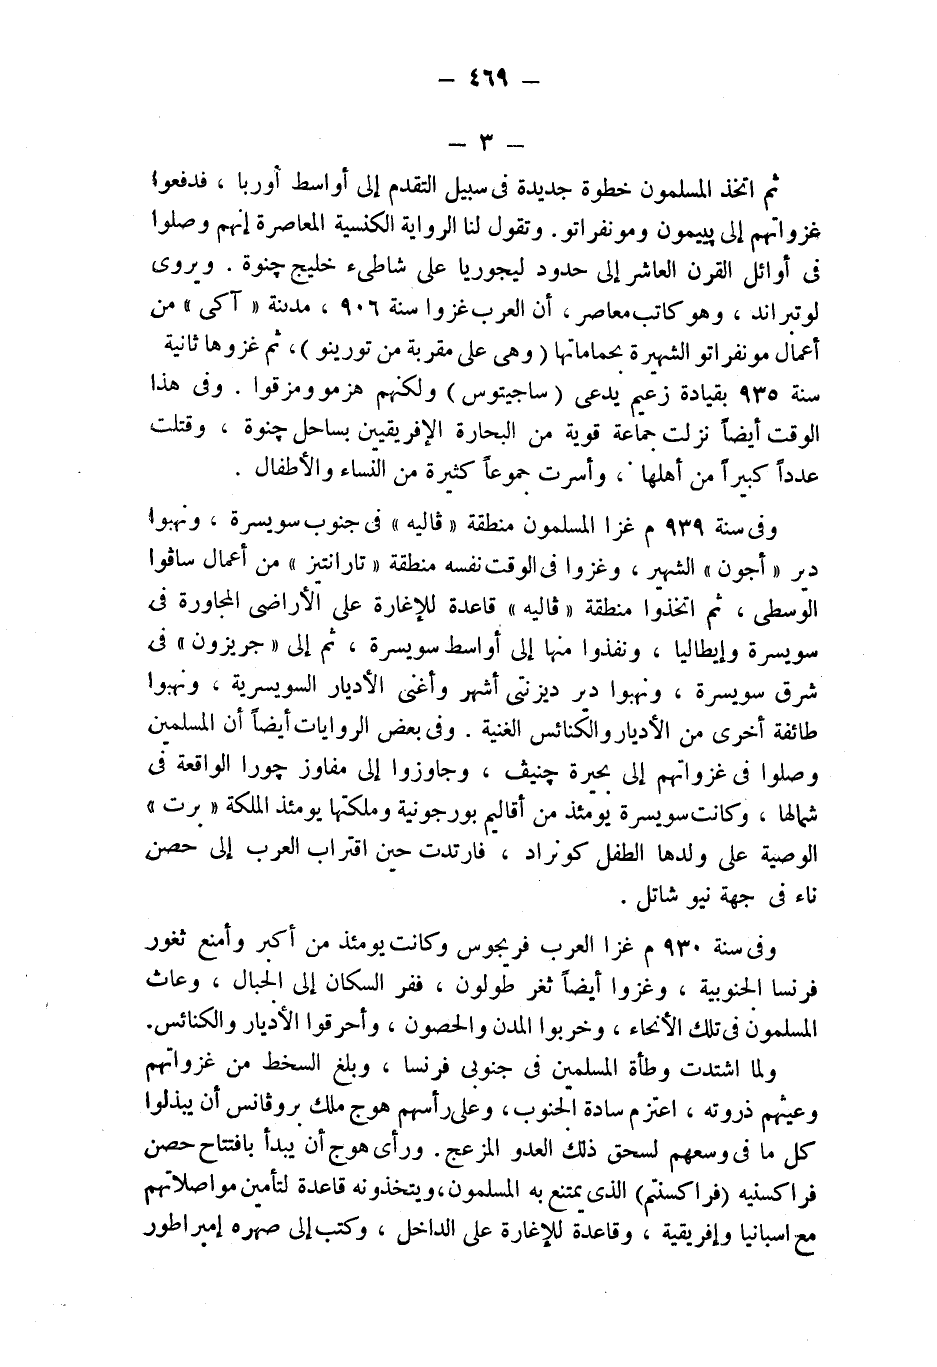 — ٤٦٩ —
— ٣ —
ثم اتخذ المسلمون خطوة جديدة فى سبيل التقدم إلى أواسط أوربا ، فدفعوا
غزواتهم إلى پييمون ومونفراتو . وتقول لنا الرواية الكنسية المعاصرة إنهم وصلوا
فى أوائل القرن العاشر إلى حدود ليجوريا على شاطىء خليج چنوة . ويروى
لوتبراند ، وهو كاتب معاصر ، أن العرب غزوا سنة ٩٠٦ ، مدينة « آكى » من
أعمال مونفراتو الشهيرة بحماماتها ( وهى على مقربة من تورينو ) ، ثم غزوها ثانية
سنة ٩٣٥ بقيادة زعيم يدعى ( ساجيتوس ) ولكنهم هزمو ومزقوا . وفى هذا
الوقت أيضاً نزلت جماعة قوية من البحارة الإفريقيين بساحل چنوة ، وقتلت
عدداً كبيراً من أهلها ، وأسرت جموعاً كثيرة من النساء والأطفال .
وفى سنة ٩٣٩ م غزا المسلمون منطقة « ڤاليه » فى جنوب سويسرة ، ونهبوا
دير « أجون » الشهير ، وغزوا فى الوقت نفسه منطقة « تارانتيز » من أعمال ساڤوا
الوسطى ، ثم اتخذوا منطقة « ڤاليه » قاعدة للإغارة على الأراضى المجاورة فى
سويسرة وإيطاليا ، ونفذوا منها إلى أواسط سويسرة ، ثم إلى « جريزون » فى
شرق سويسرة ، ونهبوا دير ديزنتى أشهر وأغنى الأديار السويسرية ، ونهبوا
طائفة أخرى من الأديار والكنائس الغنية . وفى بعض الروايات أيضاً أن المسلمين
وصلوا فى غزواتهم إلى بحيرة چنيڤ ، وجاوزوا إلى مفاوز چورا الواقعة فى
شمالها ، وكانت سويسرة يومئذ من أقاليم بورجونية وملكتها يومئذ الملكة « برت »
الوصية على ولدها الطفل كونراد ، فارتدت حين اقتراب العرب إلى حصن
ناء فى جهة نيو شاتل .
وفى سنة ٩٣٠ م غزا العرب فريجوس وكانت يومئذ من أكبر وأمنع ثغور
فرنسا الجنوبية ، وغزوا أيضاً ثغر طولون ، ففر السكان إلى الجبال ، وعاث
المسلمون فى تلك الأنحاء ، وخربوا المدن والحصون ، وأحرقوا الأديار والكنائس.
ولما اشتدت وطأة المسلمين فى جنوبى فرنسا ، وبلغ السخط من غزواتهم
وعيثهم ذروته ، اعتزم سادة الجنوب ، وعلى رأسهم هوج ملك بروڤانس أن يبذلوا
كل ما فى وسعهم لسحق ذلك العدو المزعج . ورأى هوج أن يبدأ بافتتاح حصن
فراكسنيه (فراكسنتم) الذى يمتنع به المسلمون، ويتخذونه قاعدة لتأمين مواصلاتهم
مع اسبانيا وإفريقية ، وقاعدة للإغارة على الداخل ، وكتب إلى صهره إمبراطور